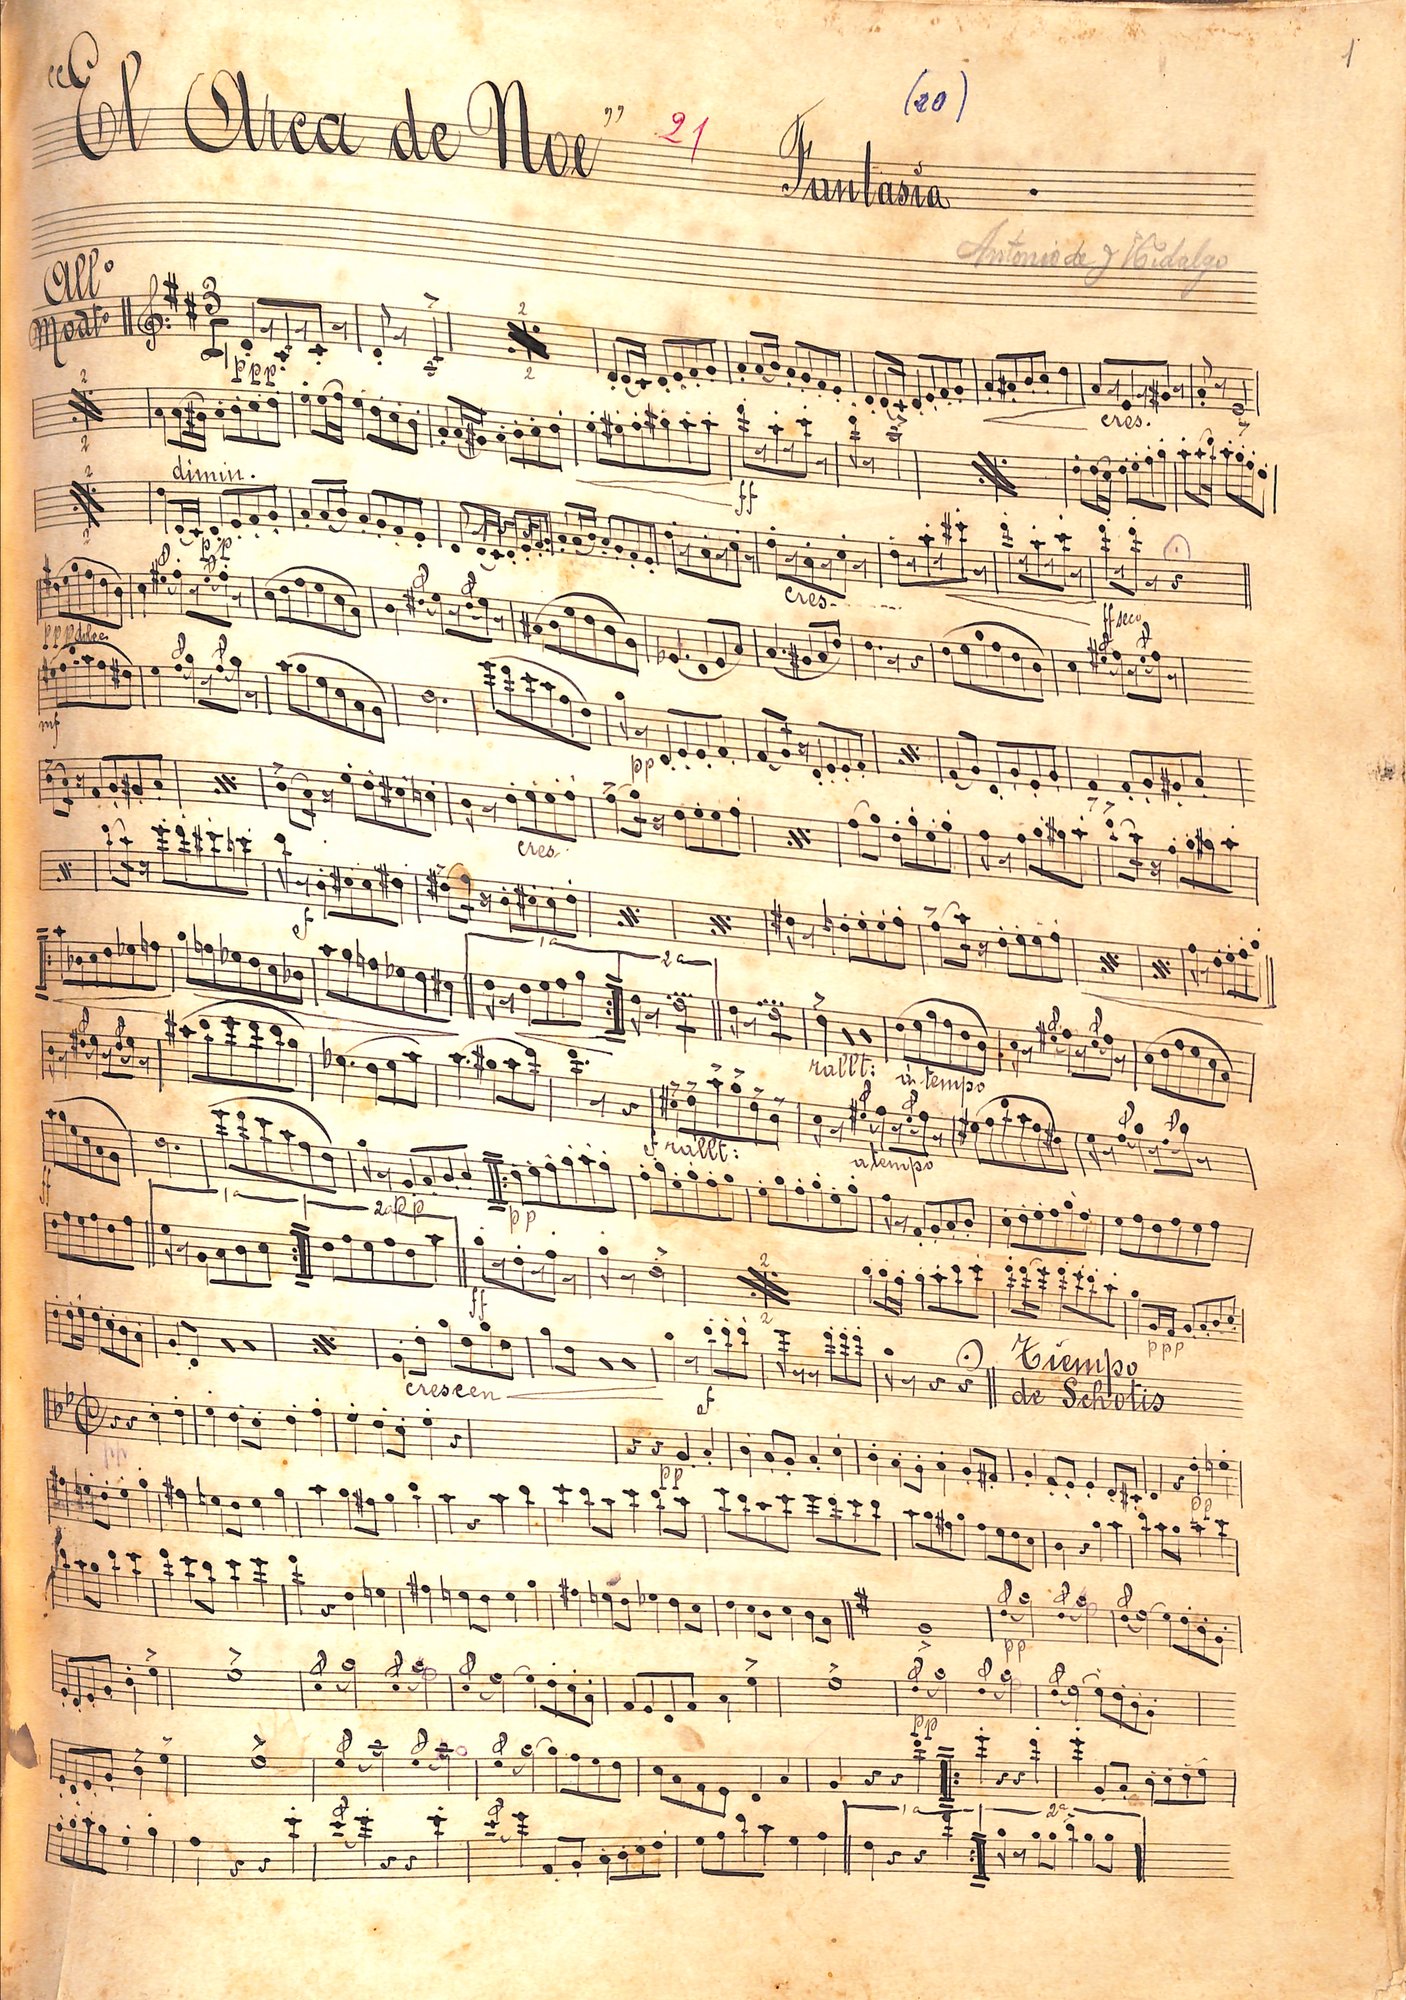 1
"El Arca de Noe" 21 Fantasia (20)
Antonio de J Hidalgo
All°
Modt° 3
ppp
2
2
cres.
2
2
dimin.
ff
2
2
pp
cres
ff seco
ppp dolce
mf
pp
cres
f
1a 2a
rallt: a tempo
f rallt: a tempo
ff
pp
pp
1a 2a
ff
2
2
ppp
crescen
f
Tiempo
de Schotis
pp
pp
pp
pp
pp
1a 2a